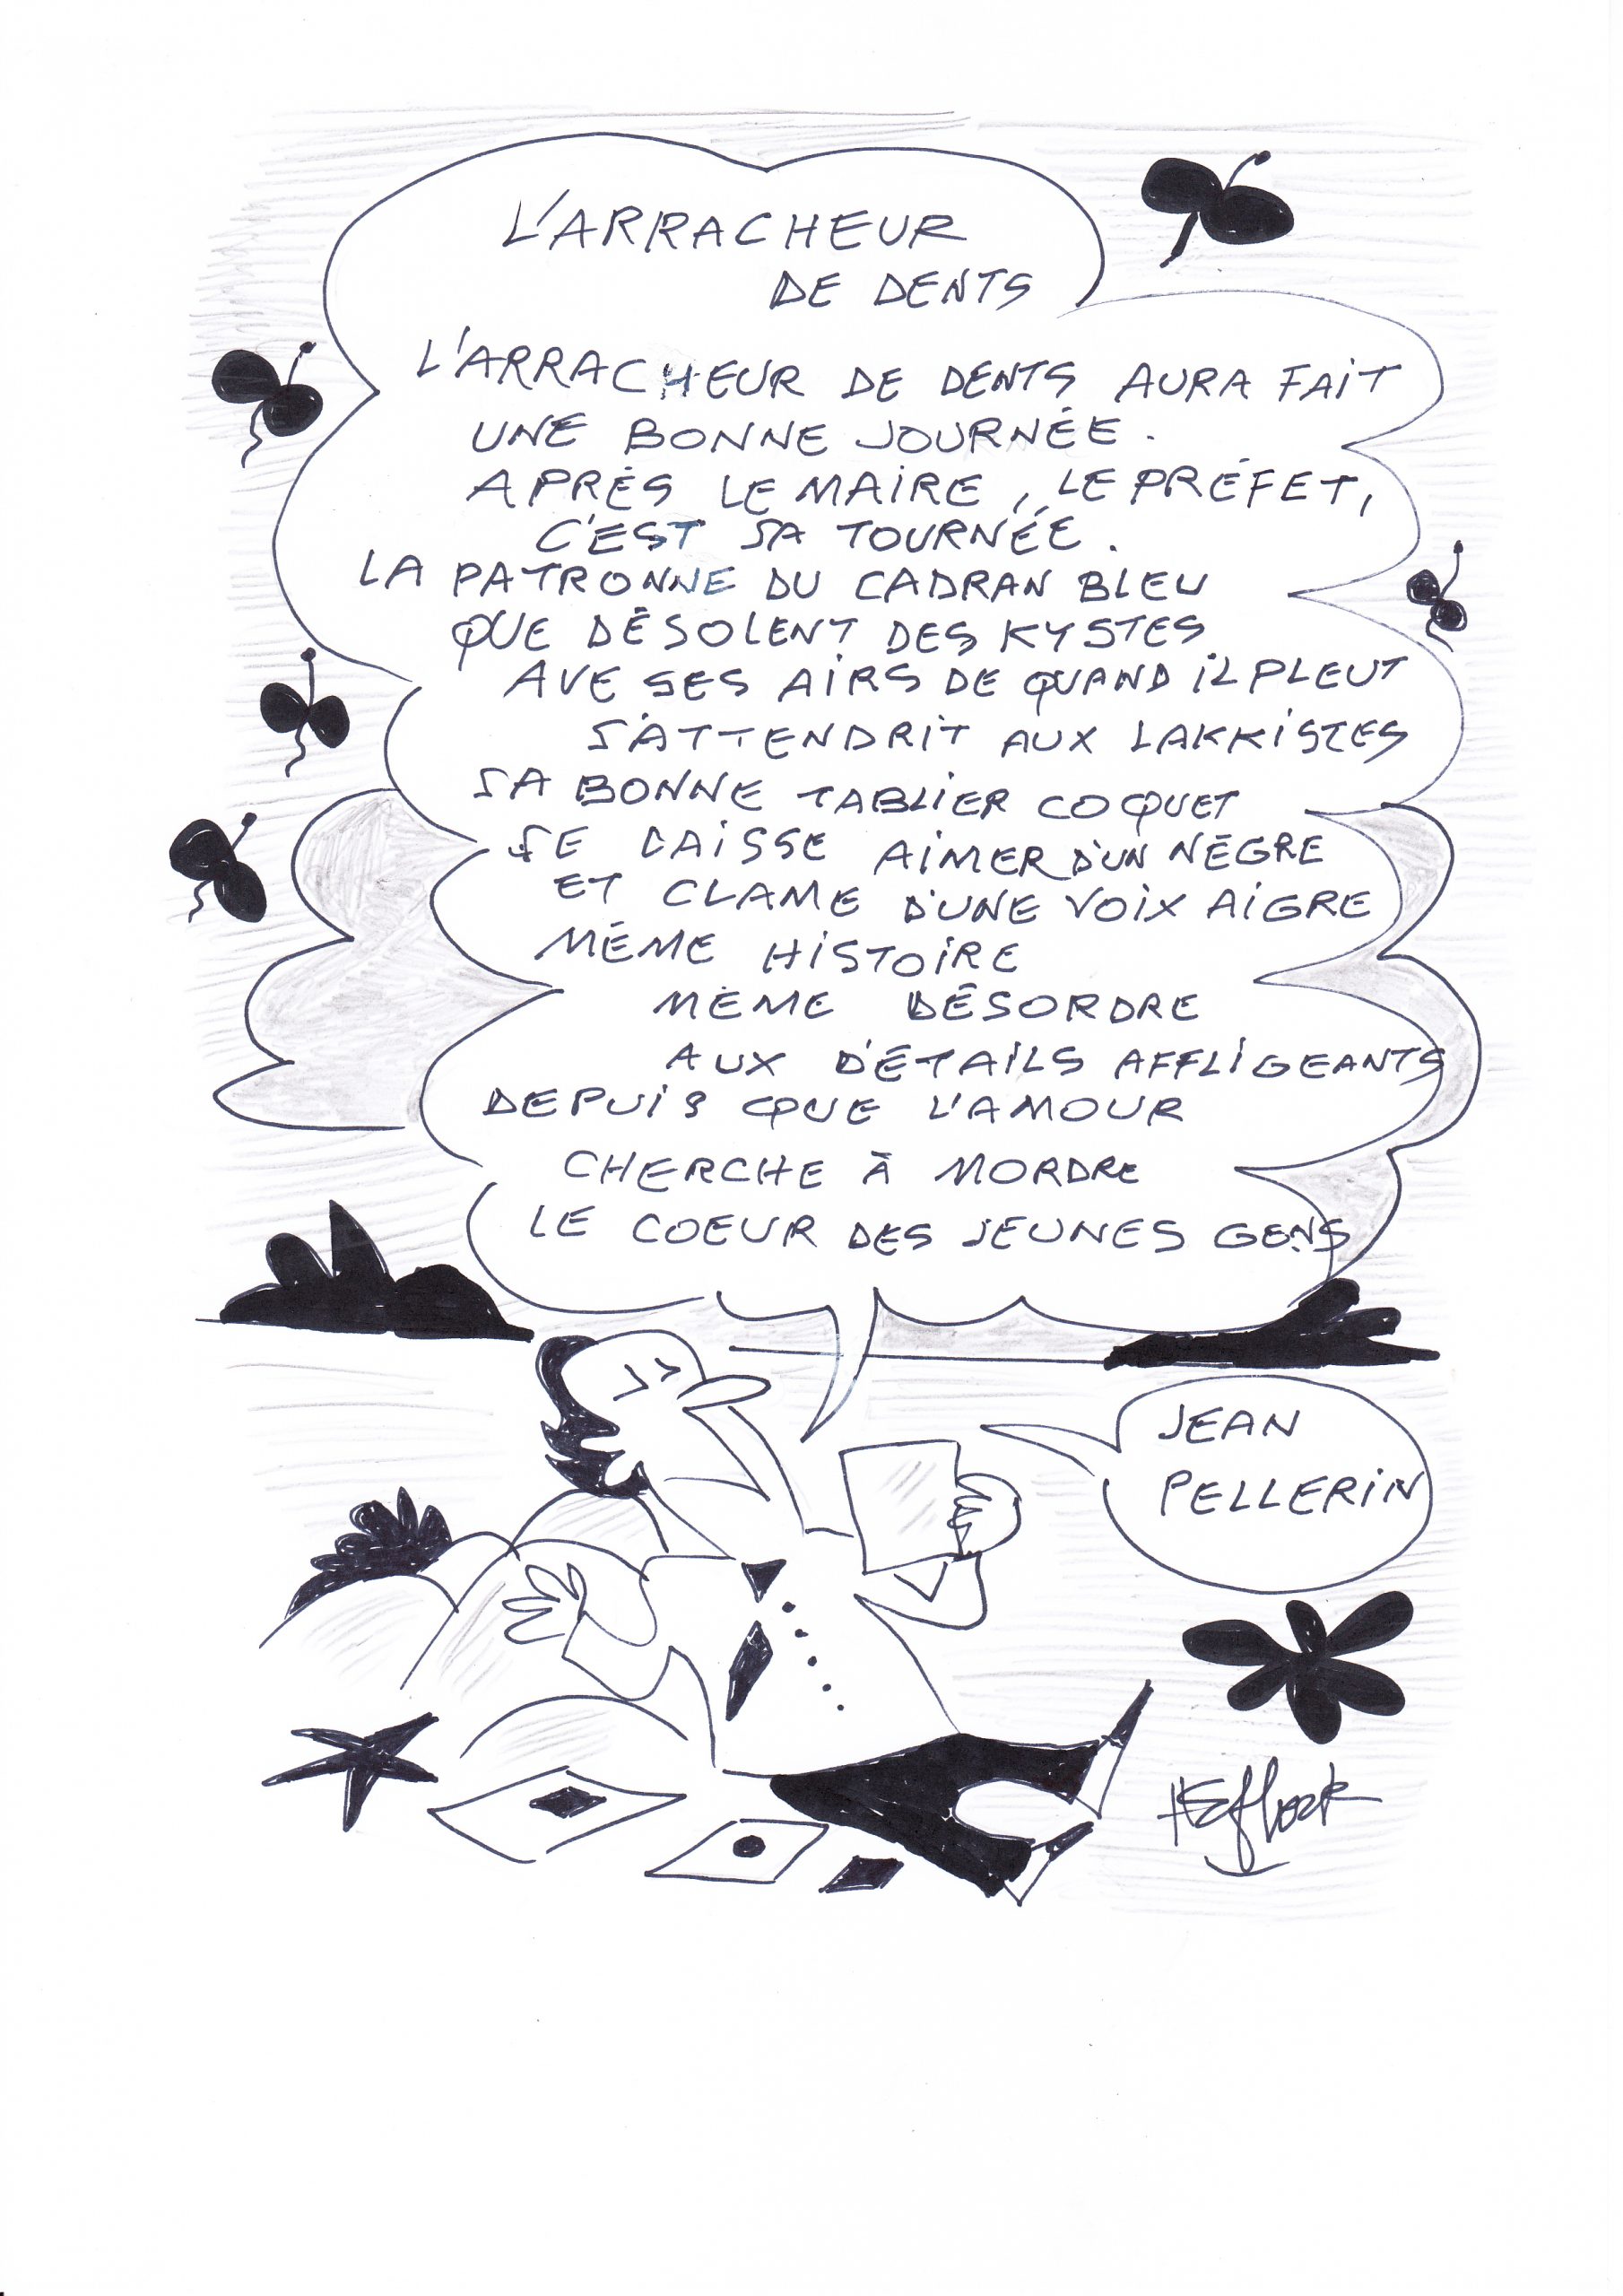 L'ARRACHEUR
DE DENTS
L'ARRACHEUR DE DENTS AURA FAIT
UNE BONNE JOURNÉE.
APRÈS LE MAIRE, LE PRÉFET,
C'EST SA TOURNÉE.
LA PATRONNE DU CADRAN BLEU
QUE DÉSOLENT DES KYSTES
AVE SES AIRS DE QUAND IL PLEUT
S'ATTENDRIT AUX LAKKISTES
SA BONNE TABLIER COQUET
SE LAISSE AIMER D'UN NÈGRE
ET CLAME D'UNE VOIX AIGRE
MÊME HISTOIRE
MÊME DÉSORDRE
AUX DÉTAILS AFFLIGEANTS
DEPUIS QUE L'AMOUR
CHERCHE À MORDRE
LE COEUR DES JEUNES GENS
JEAN
PELLERIN